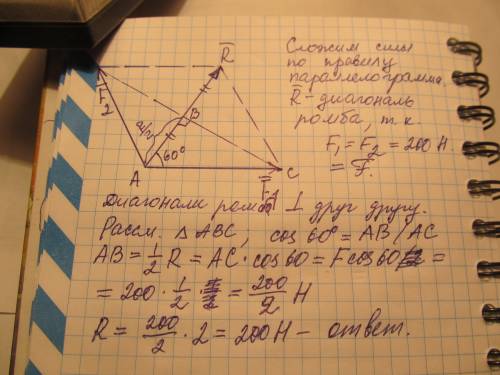 Сложим силы
по правилу
параллелограмма.
R̅ - диагональ
ромба, т.к.
F₁ = F₂ = 200 Н.
= F.
R̅
F₂
B
R/2
60°
A
C
F̅₁
Диагонали ромба ⊥ друг другу.
Рассм. △ ABC, cos 60° = AB / AC
AB = 1/2 R = AC · cos 60 = F cos 60 =
= 200 · 1/2 · = 200/2 Н
R = 200/2 · 2 = 200 Н - ответ.